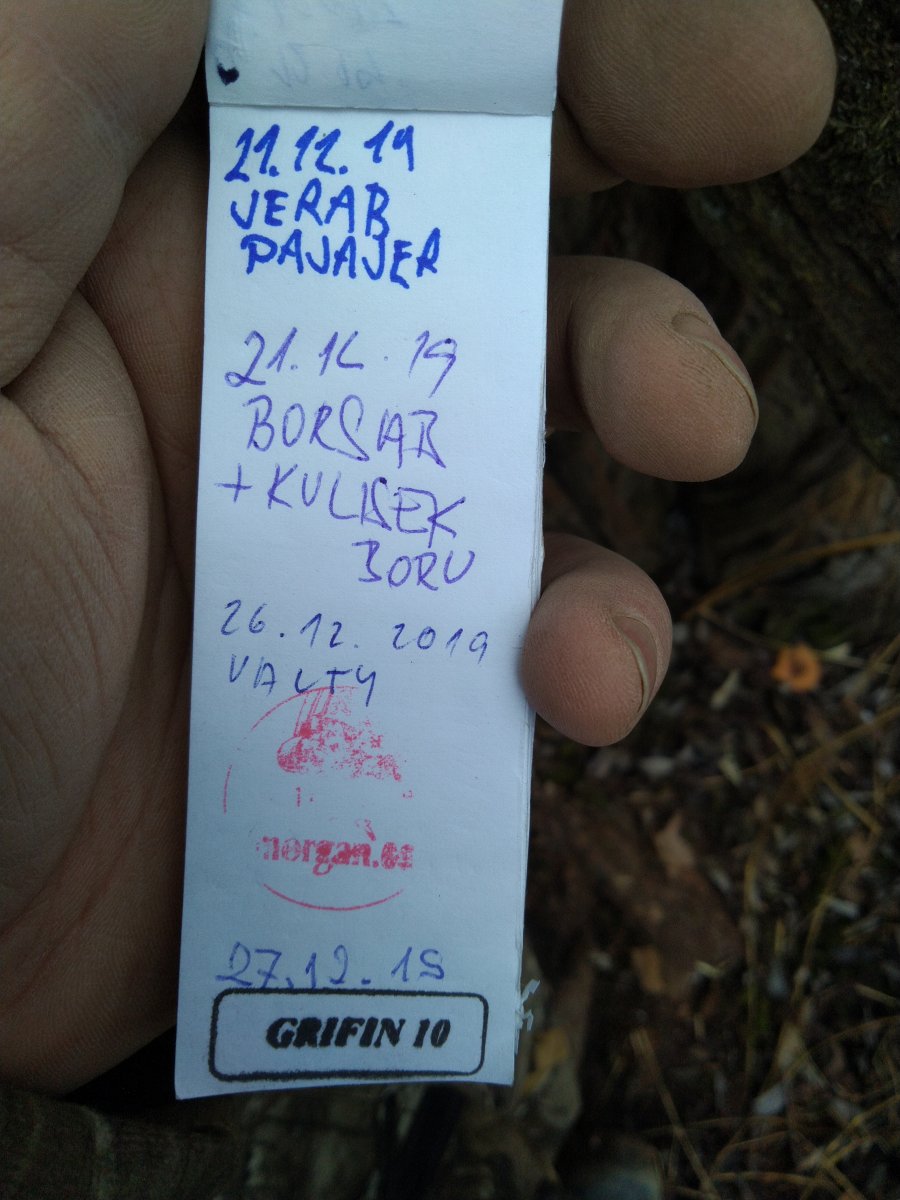 21.12.19
JERAB
PAJAJER
21.12.19
BORSIAB
+ KULISEK
BORU
26.12.2019
VALTY
morgan.cz
27.12.19
GRIFIN 10